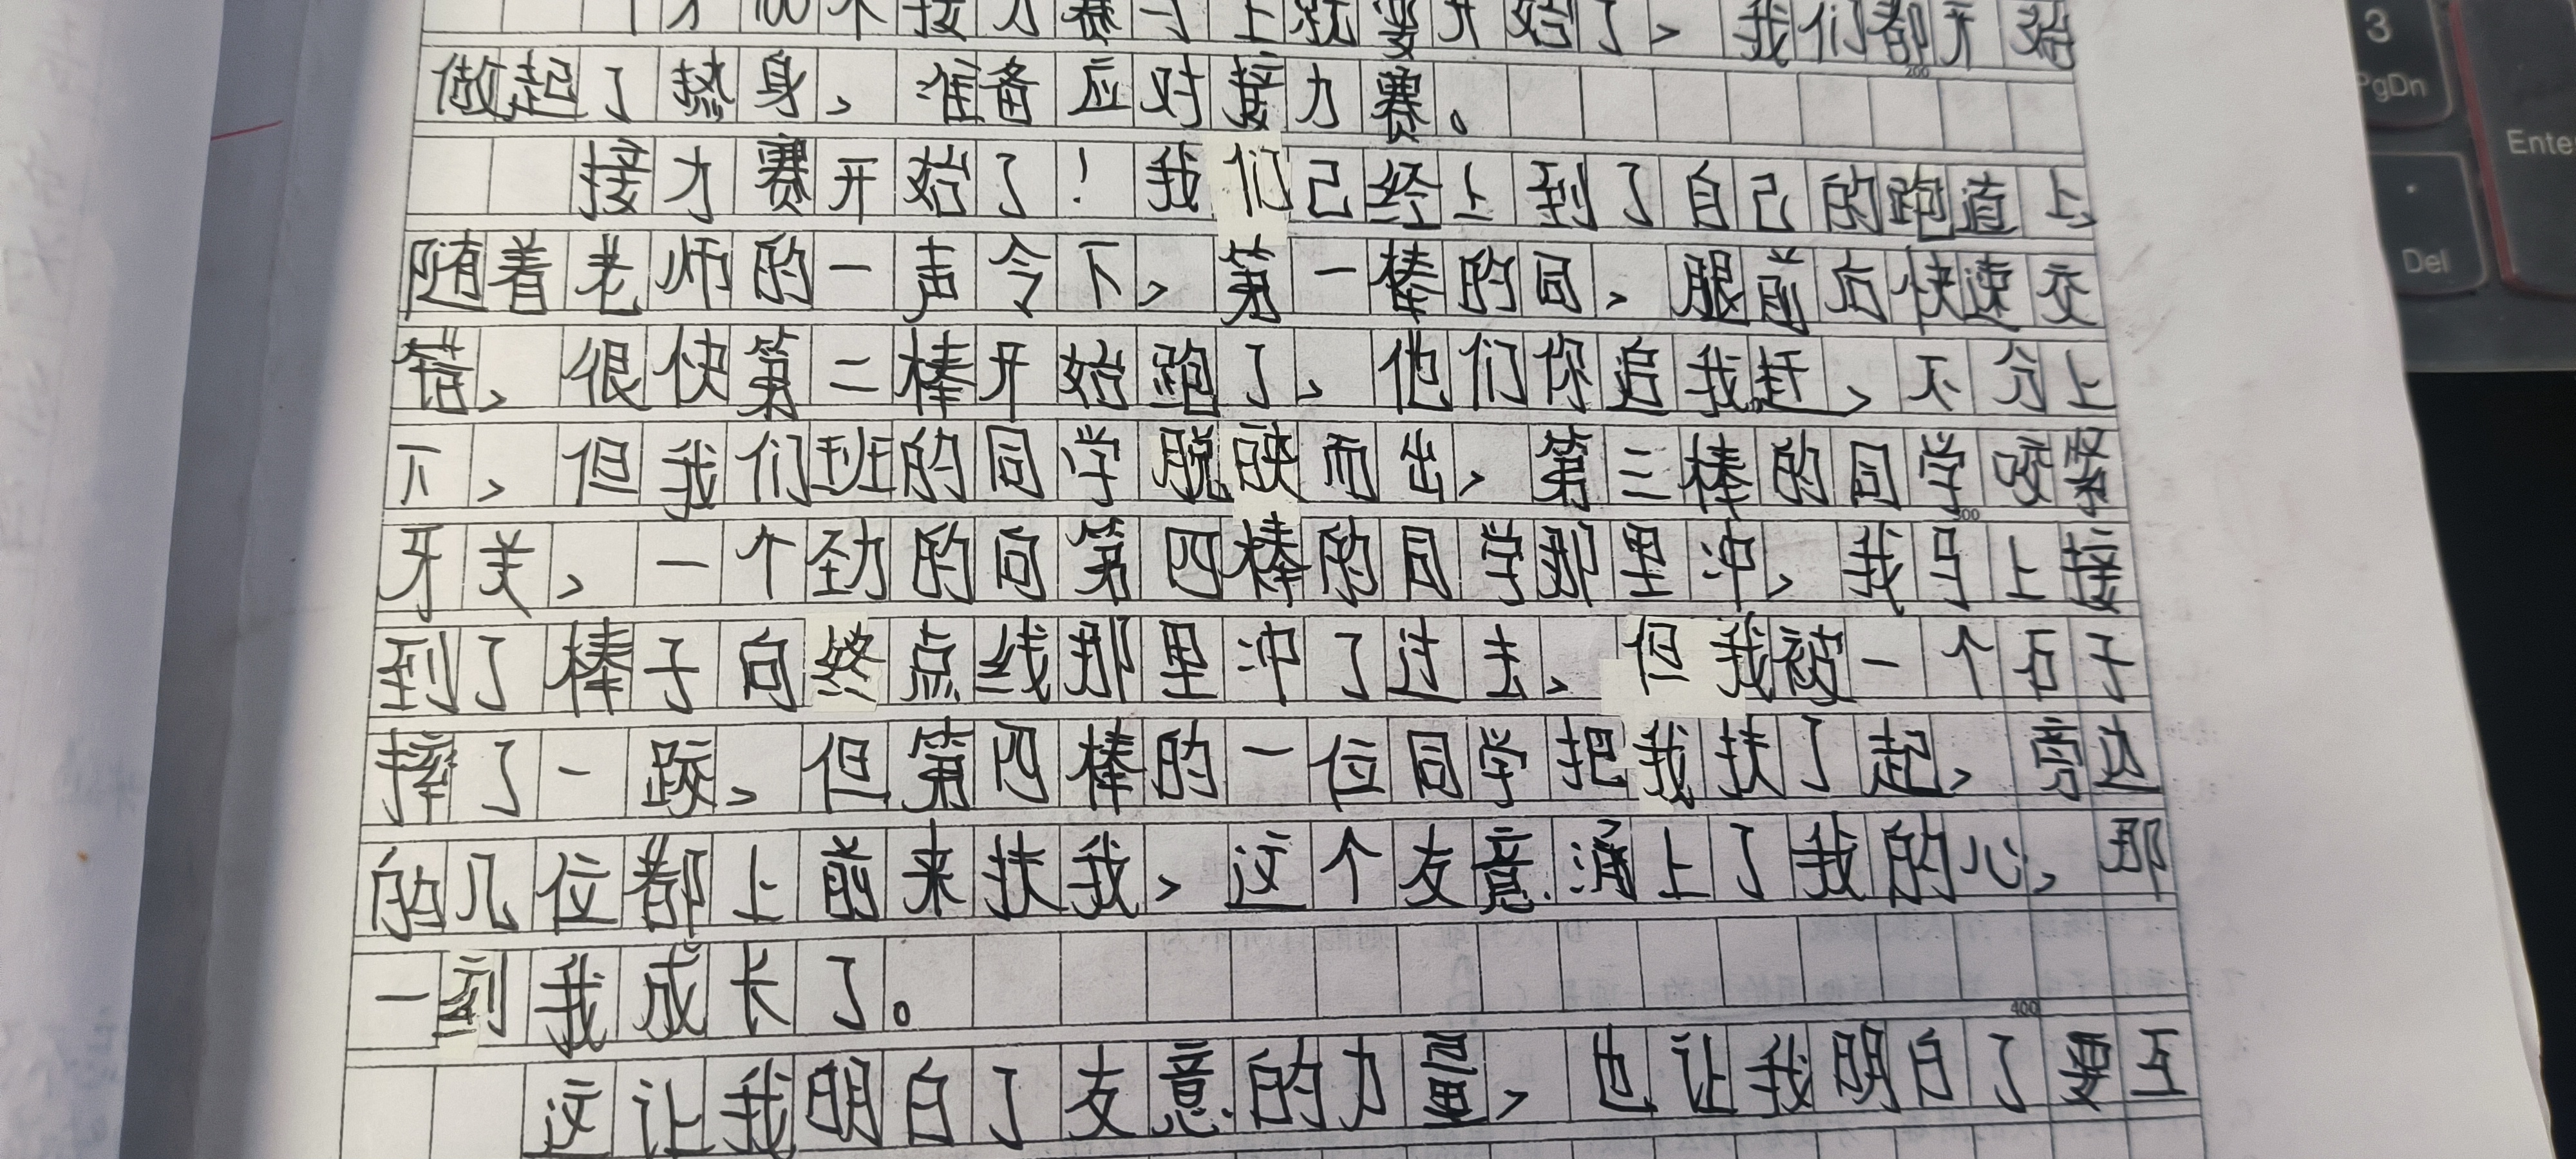 100米接力赛马上就要开始了，我们都开始
做起了热身，准备应对接力赛。
接力赛开始了！我们已经上到了自己的跑道上，
随着老师的一声令下，第一棒的同，腿前后快速交
错，很快第二棒开始跑了，他们你追我赶，不分上
下，但我们班的同学脱颖而出，第三棒的同学咬紧
牙关，一个劲的向第四棒的同学那里冲，我马上接
到了棒子向终点线那里冲了过去，但我被一个石子
摔了一跤，但第四棒的一位同学把我扶了起，旁边
的几位都上前来扶我，这个友意涌上了我的心，那
一刻我成长了。
这让我明白了友意的力量，也让我明白了要互
3
PgDn
Ente
Del
200
300
400